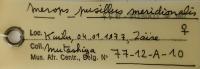 merops pusillus meridionalis
♀
Loc. Kuilu, 04.01.1977, Zaire
Coll. Mutashiga
Mus. Afr. Centr., Belg. N° 77-12-A-10